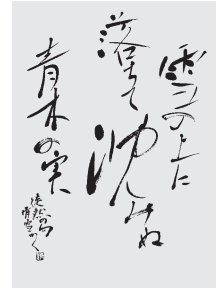 雪の上に
落ちて沈みぬ
青木の実